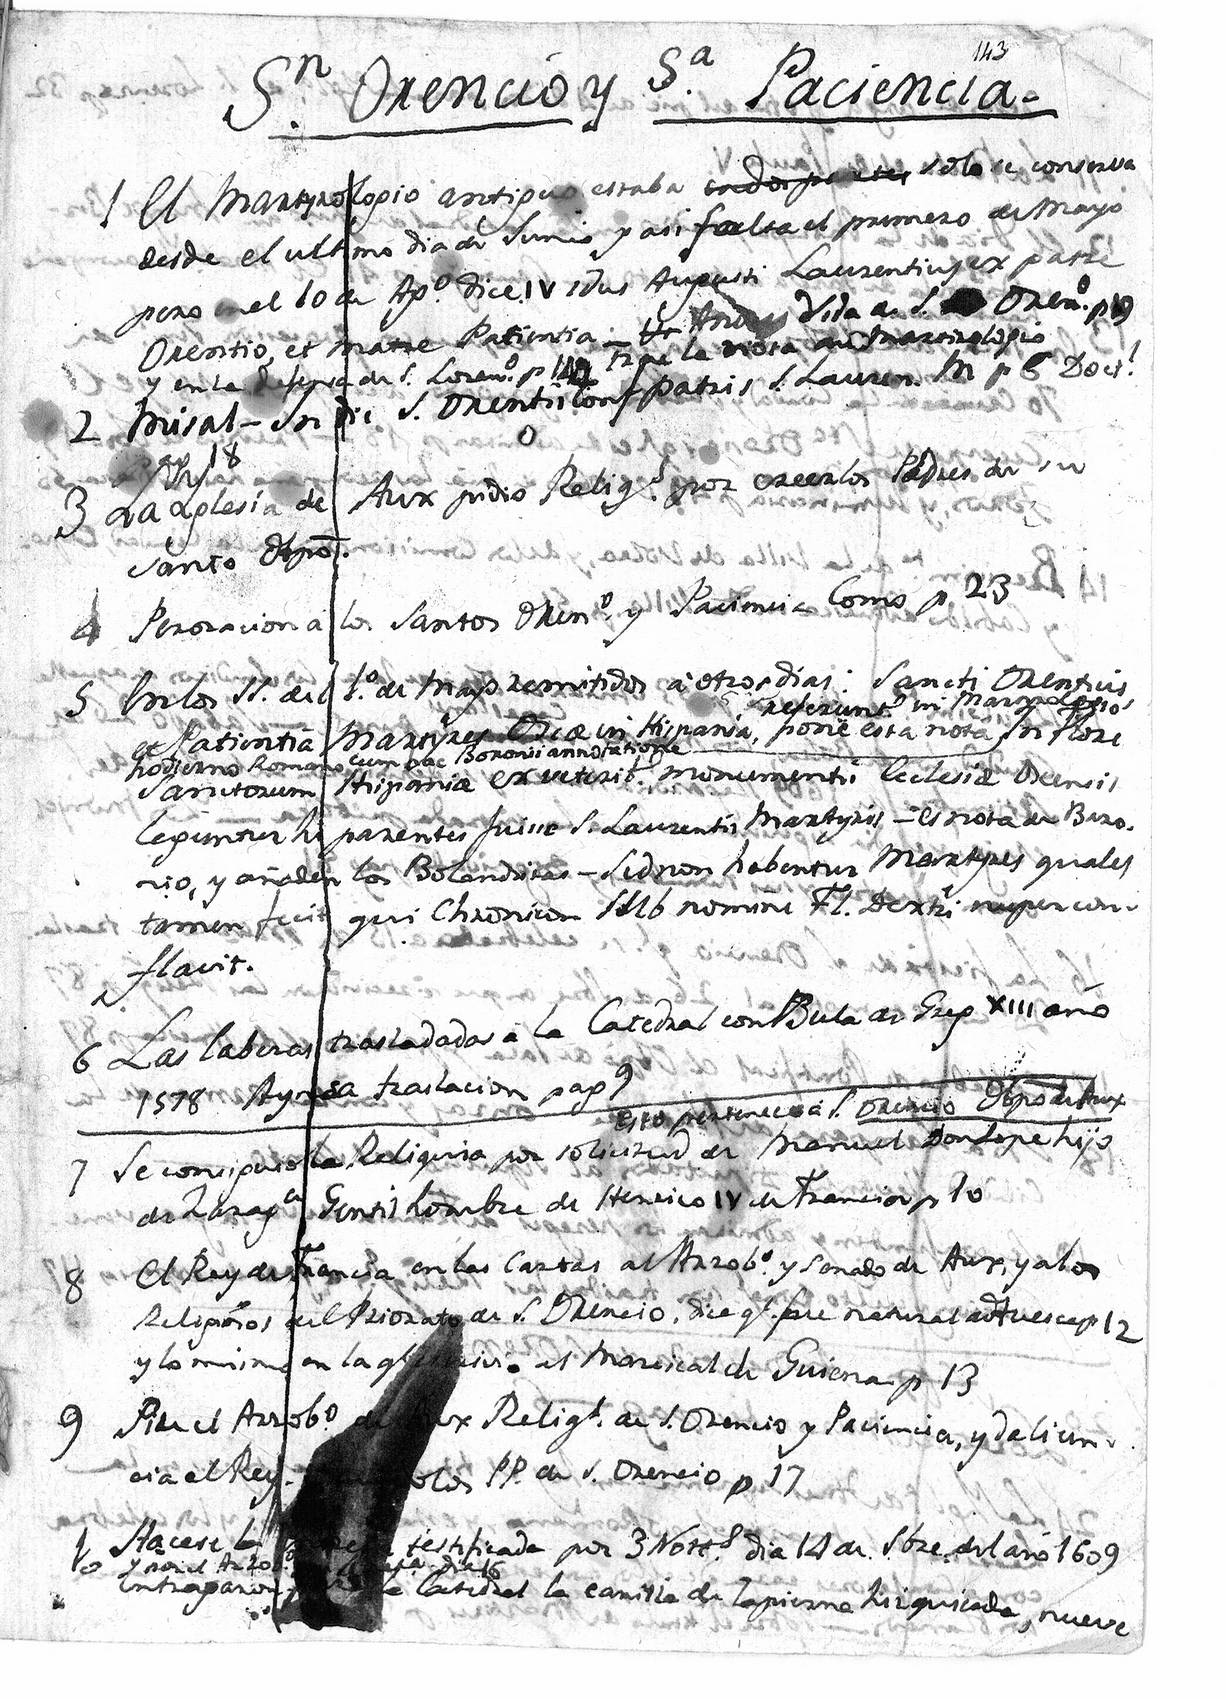 143
Sn. Orencio y Sa. Paciencia.
1 El Martyrologio antiguo estaba solo se conserva
desde el ultimo dia de Junio y asi falta el primero de Mayo
pero en el 10 de Agto. dice IV idus Augusti Laurentius ex patre
Orentio, et matre Patientia - Vida de S. Oreno. p 19
y en la defensa de S. Loreno. p 140 trae la nota del Martirologio
2 Misal - In die S. Orentii Conf patris S. Lauren. M p 6 Doct.
18
3 La Iglesia de Aux pidio Religs. por creerlos Padres de su
santo Obpo.
4 Peroracion a los Santos Oreno. y Paciencia Como p 23
5 En los SS. del 1o. de Mayo remitidos a otros dias: Sancti Orentius
referunto. in Martyrologios
et Patientia Martyres Oscæ in Hispania, pone esta nota In flore
hodierno Romano cum hac Baronii annotatione
Sanctorum Hispaniæ ex veterib. monumentis Eclesiæ Oscensis
leguntur hi parentes fuisse S. Laurentii Martyris - es nota de Baro-
nio, y añaden los Bolandistas - Sed non habentur Martyres quales
tamen fecit qui Chronicon sub nomine Fl. Dextri nuper con-
flavit.
6 Las laboras trasladadas a la Catedral con Bula de Greg XIII año
1578 Aynsa traslacion pag 9
esto pertenece a S. Orencio Obpo de Aux
7 Se consiguio la Reliquia por solicitud de Manuel Don Lope hijo
de Zaraga Gentil hombre de Henrico IV de Francia p 10
8 El Rey de Francia en las Cartas al Arzobo. y Senado de Aux, y a los
Religiosos del Priorato de S. Orencio, dice q. fue natural de Huesca p 12
y lo mismo en la q. al Mariscal de Guiena p 13
9 Pide el Arzobo. de Aux Religs. de S. Orencio y Paciencia, y da licen-
cia el Rey. los PP. de S. Orencio p 17
10 Hacese la testificada por 3 Nots. dia 14 de Sbre. del año 1609
y por el Arzobo. dia 16
Entregaron la Catedral la canilla de la pierna hizquierda, nueve